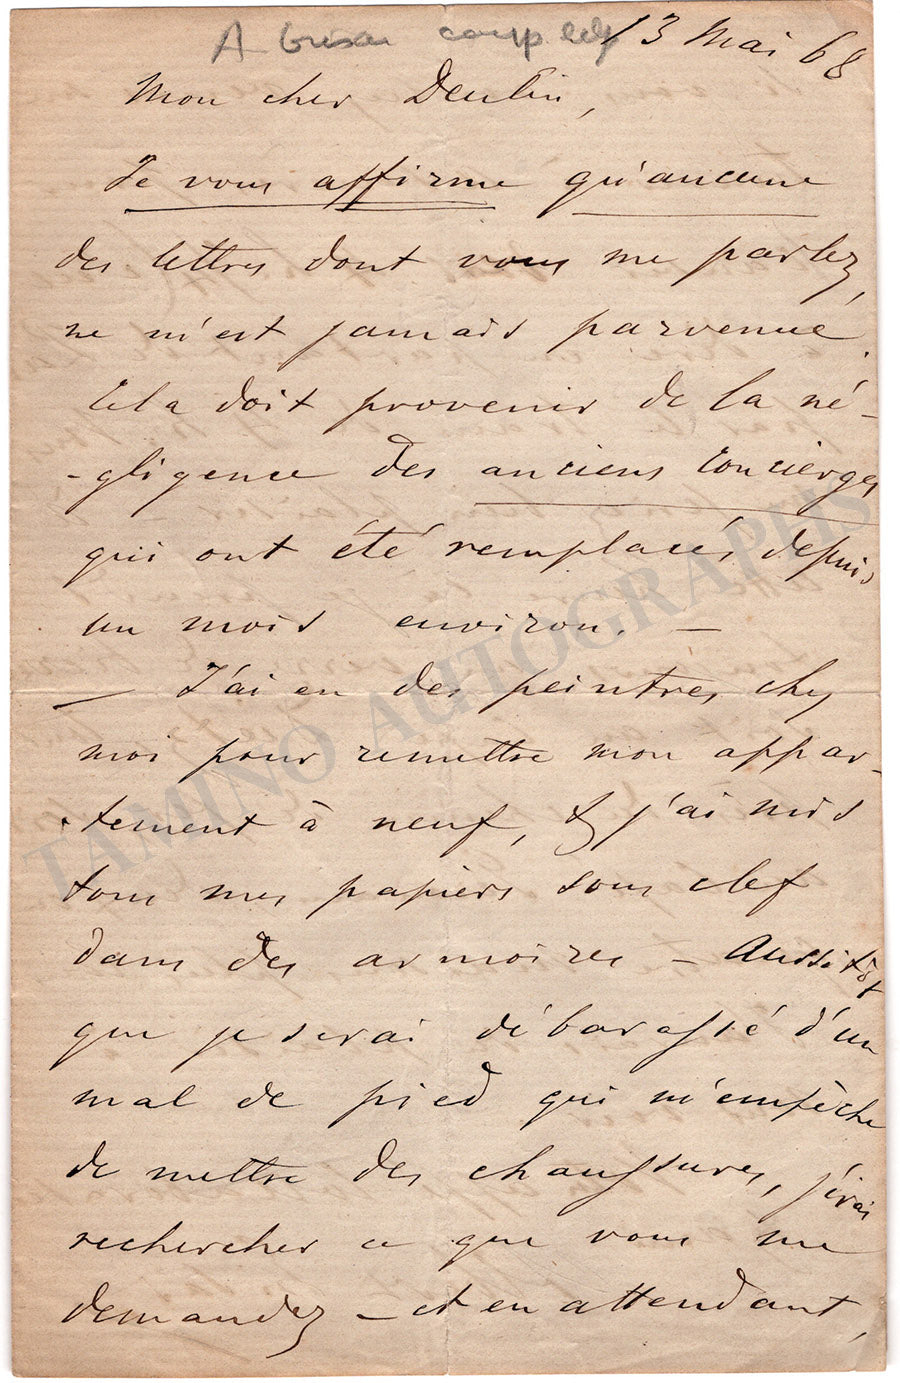 A Grisar
13 Mai 68
Mon cher Deulin,
Je vous affirme qu'aucune
des lettres dont vous me parlez,
ne m'est jamais parvenue.
Cela doit provenir de la né-
-gligence des anciens concierges
qui ont été remplacés depuis
un mois environ. —
— J'ai eu des peintres chez
moi pour remettre mon appar-
-tement à neuf, & j'ai mis
tous mes papiers sous clef
dans des armoires — Aussitôt
que je serai débarassé d'un
mal de pied qui m'empêche
de mettre des chaussures, j'irai
rechercher ce que vous me
demandez — et en attendant,
TAMINO AUTOGRAPHS